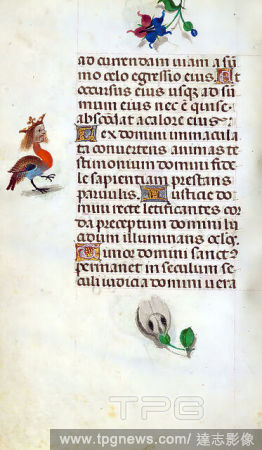 ad currendam viam a sũ
mo celo egressio eius Et
occursus eius usq̃ ad sũ
mum eius nec ē qui se
abscõdat a calore eius
Lex domini immacula
ta convertens animas te
stimonium domini fide
le sapientiam prestans
parvulis Iusticie do
mini recte letificantes cor
da preceptum domini lu
cidum illuminans
Timor domini sanctꝰ
permanet in seculum se
culi iudicia domini vera
TPG
www.tpgnews.com/ 達志影像